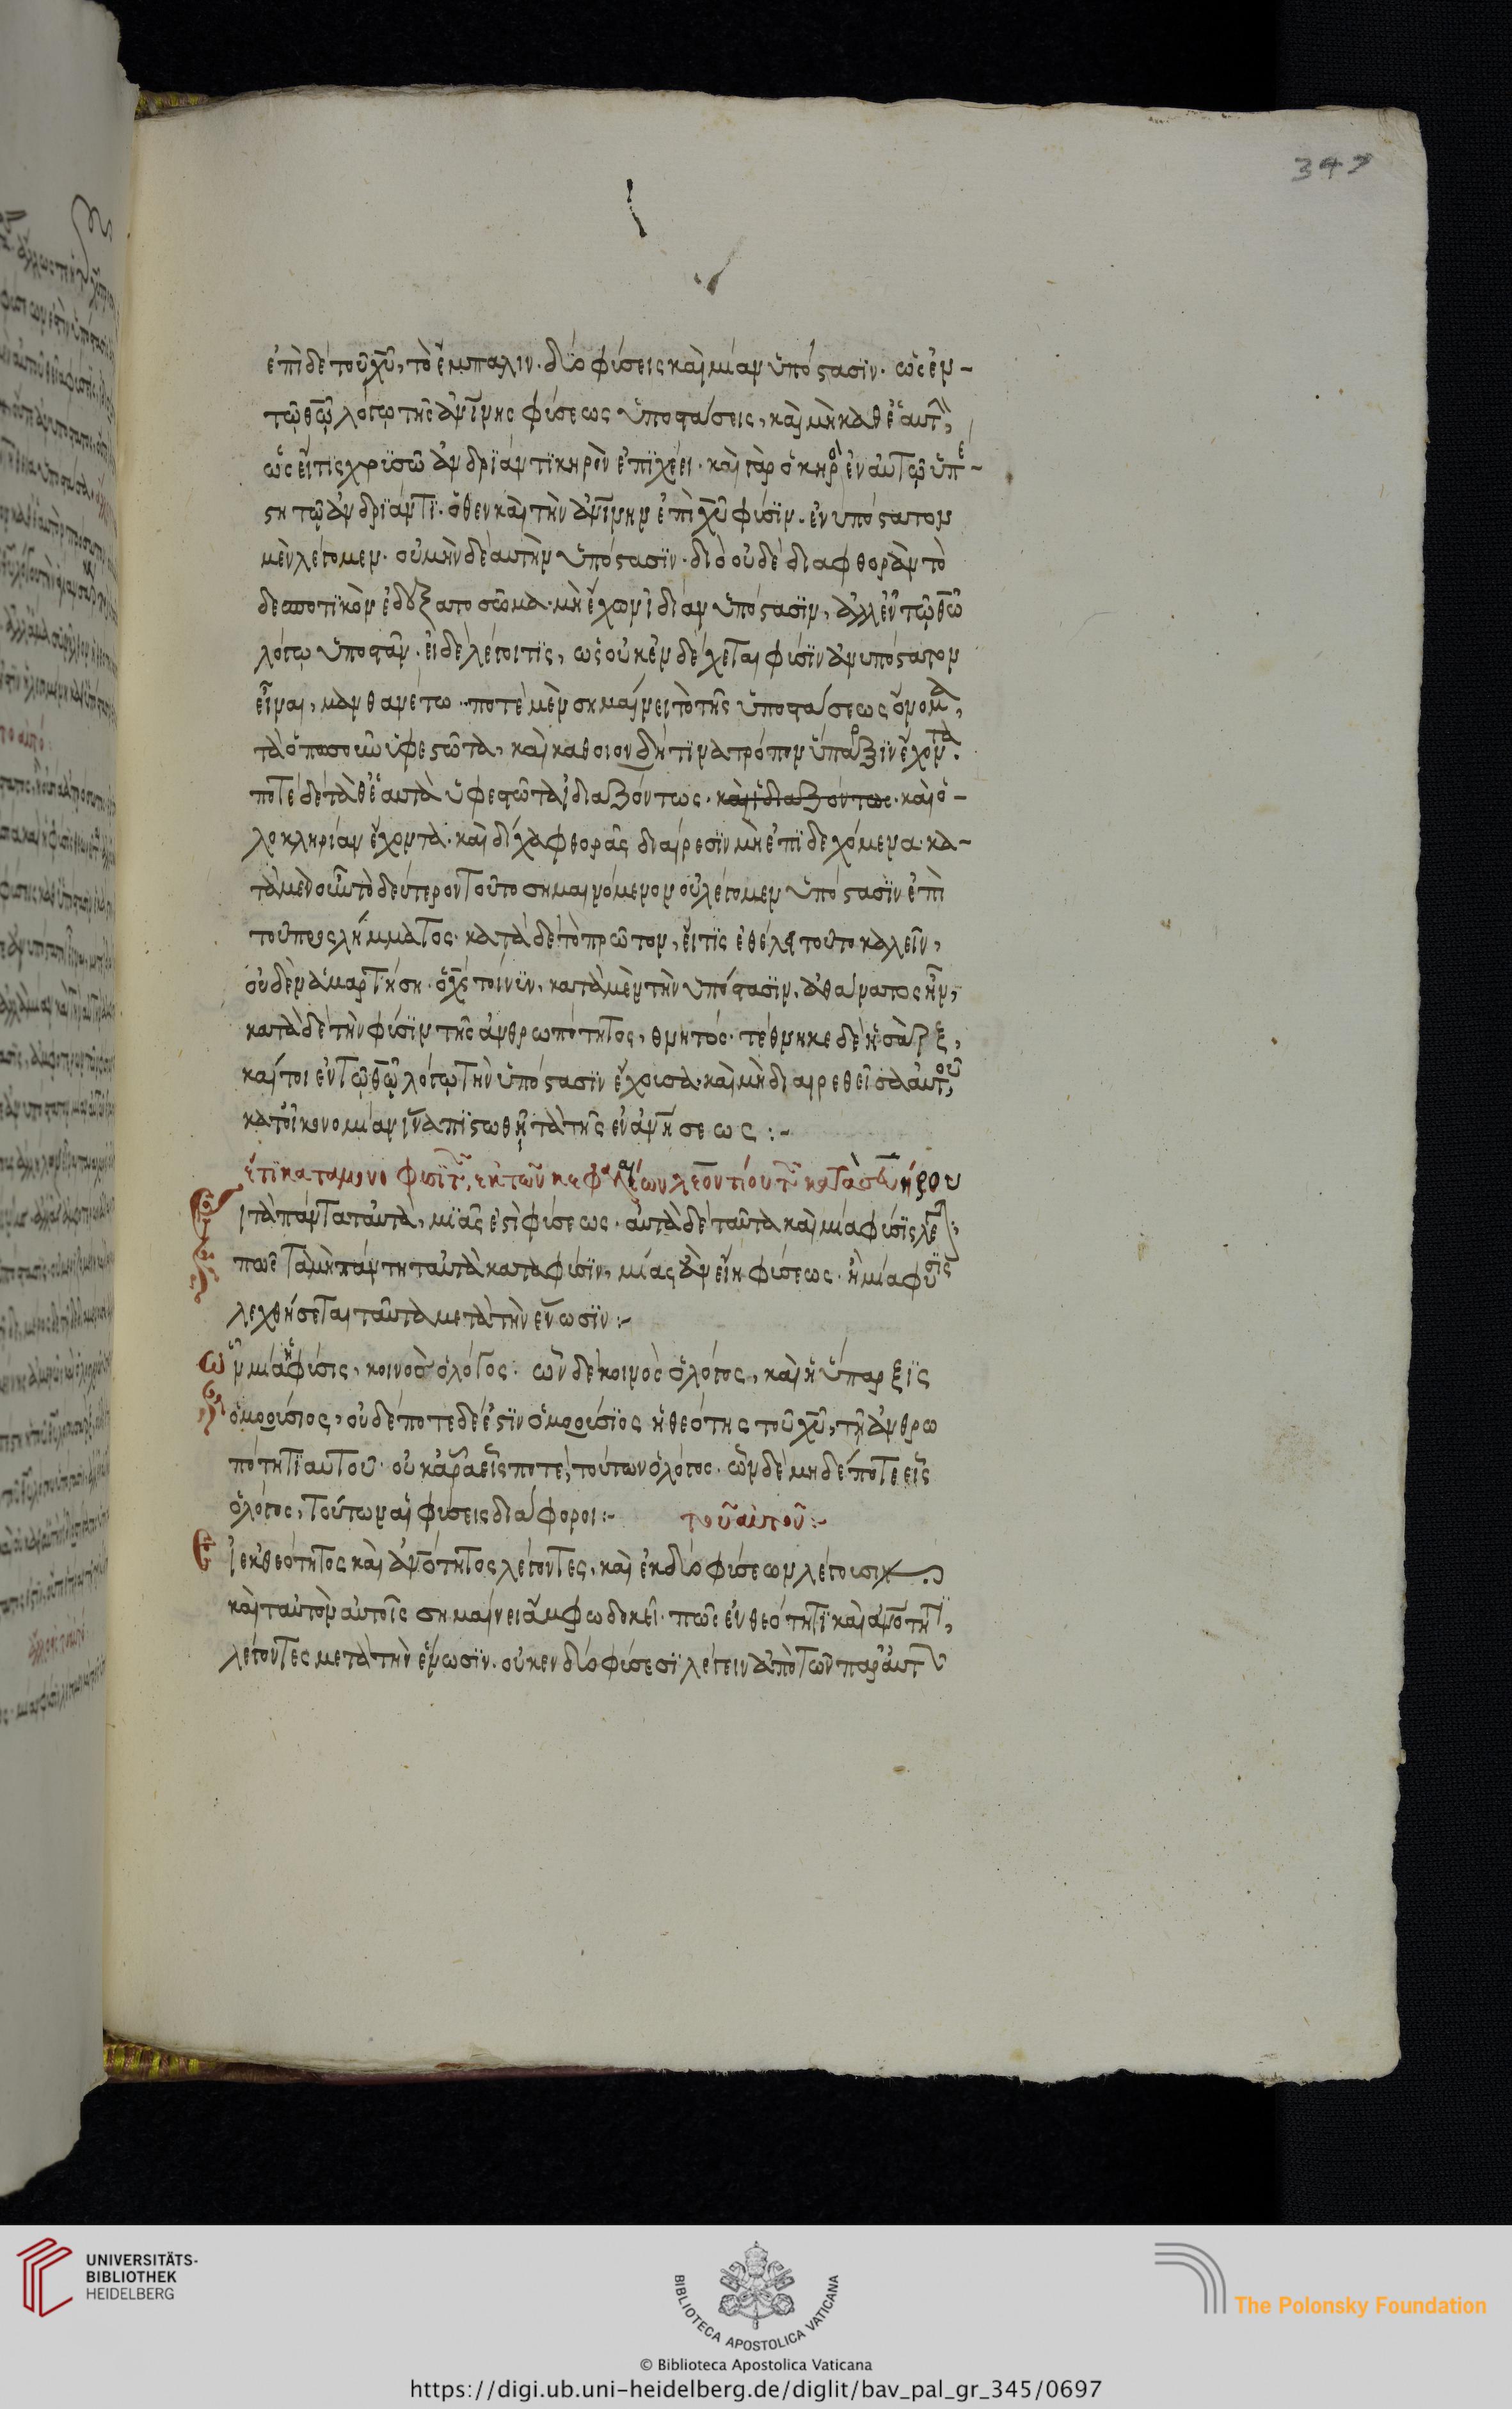 347
ἐπὶ δὲ τοῦ χ̅υ̅, τὸ ἔμπαλιν. δύο φύσεις καὶ μίαν ὑπόστασϊν. ὡς ἐν-
τῷ θ̅ω̅ λόγω τῆς ἀν̅ί̅νης φύσεως ὑποστάσεις, καὶ μὴ καθ' ἑαυτ,
ὡς εἴτις χρϋσῶ ἀνδρϊάντϊ κηρὸν ἐπϊχέει. καὶ γὰρ ὁ κηρὸ ἐν αὐτῷ ὑπέ-
στη τῷ ἀνδρϊάντϊ. ὅθεν καὶ τὴν ἀν̅ί̅νην ἐπὶ χ̅υ̅ φύσϊν. ἐνυπόστατον
μὲν λέγομεν. οὐ μὴν δὲ αὐτὴν ὑπόστασϊν. διὸ οὐδὲ διαφθορὰν τὸ
δεσποτϊκὸν ἐδέξατο σῶμα. μὴ ἔχων ἰδίαν ὑπόστασϊν, ἀλλ' ἐν τῷ θ̅ω̅
λόγω ὑποστὰν. εἰ δὲ λέγοι τϊς, ὡς οὐκ ἐνδέχεται φύσϊν ἀνυπόστατον
εἶναι, μανθανέτω. ποτὲ μὲν σημαίνει τὸ τῆς ὑποστάσεως ὄνομα,
τὰ ὁπωσοῦν ὑφεστῶτα, καὶ καθ' οιονδήτϊνα τρόπον ὕπαρξϊν ἔχοντα.
ποτὲ δὲ τὰ θ' ἑαυτὰ ὑφεστῶτα ἰδιαζόντως. καὶ ἰδιαζόντως. καὶ ὁ-
λοκληρίαν ἔχοντα. καὶ δίχα φθορᾶς διαίρεσϊν μὴ ἐπϊδεχόμενα. κα-
τὰ μὲν οὖν τὸ δεύτερον τοῦτο σημαινόμενον οὐ λέγομεν ὑπόστασϊν ἐπὶ
τοῦ προσλήμματος. κατὰ δὲ τὸ πρῶτον, εἴτϊς ἐθέλει τοῦτο καλεῖν,
οὐδὲν ἁμαρτήση. ὁ χ̅ς̅ τοίνϋν, κατὰ μὲν τὴν υπόστασϊν, ἀθάνατος ἦν,
κατὰ δὲ τὴν φύσϊν τῆς ἀνθρωπότητος, θνητός. τέθνηκε δὲ ἡ σὰρξ,
καίτοι ἐν τῷ θ̅ω̅ λόγω τὴν ὑπόστασϊν ἔχουσα. καὶ μὴ διαιρεθεῖσα αὐτοῦ,
κατ' οἰκονομίαν ἵνα πϊστωθῆ τὰ τῆς ἐναν̅ή̅σεως :-
ἔτϊ κατα μονοφυσϊτ, ἐκ τῶν κεφαλαίων λεοντίου τ κατὰ σευήρου
Εἰ τὰ πάντα ταὐτὰ, μϊᾶς ἐστὶ φύσεως. αὐτὰ δὲ ταῦτα καὶ μία φύσϊς λέγ,
πῶς τὰ μὴ πάντη ταὐτὰ κατα φύσϊν, μίας ἂν εἴη φύσεως. ἢ μία φύσϊς
λεχθήσεται ταῦτα μετὰ τὴν ἕνωσϊν :-
Ὧν μία ἡ φύσις, κοινὸς ὁ λόγος. ὧν δὲ κοινὸς ὁ λόγος, καὶ ἡ ὕπαρξϊς
ὁμοούσιος, οὐδέποτε δέ ἐστϊν ὁμοούσϊος ἡ θεότης τοῦ χ̅υ̅, τῆ ἀνθρω
πότητϊ αυτοῦ. οὐκ ἄρα εἷς ποτὲ, τούτων ὁ λόγος. ὧν δὲ μηδέποτε εἷς
ὁ λόγος, τούτων αἱ φύσεις διάφοροι :- τοῦ αὐτοῦ :-
Εἰ ἐκ θεότητος καὶ ἀν̅ό̅τητος λέγοντες, καὶ ἐκ δύο φύσεων λέγουσι
καὶ ταὐτὸν αὐτοῖς σημαίνει ἄμφω δοκεῖ. πῶς ἐν θεότητϊ καὶ αν̅ό̅τητϊ,
λέγοντες μετὰ τὴν ἕνωσϊν. οὐκ εν δύο φύσεσϊ λέγειν ἀπὸ τῶν παρ' αυτ
UNIVERSITÄTS-
BIBLIOTHEK
HEIDELBERG
BIBLIOTECA APOSTOLICA VATICANA
The Polonsky Foundation
© Biblioteca Apostolica Vaticana
https://digi.ub.uni-heidelberg.de/diglit/bav_pal_gr_345/0697